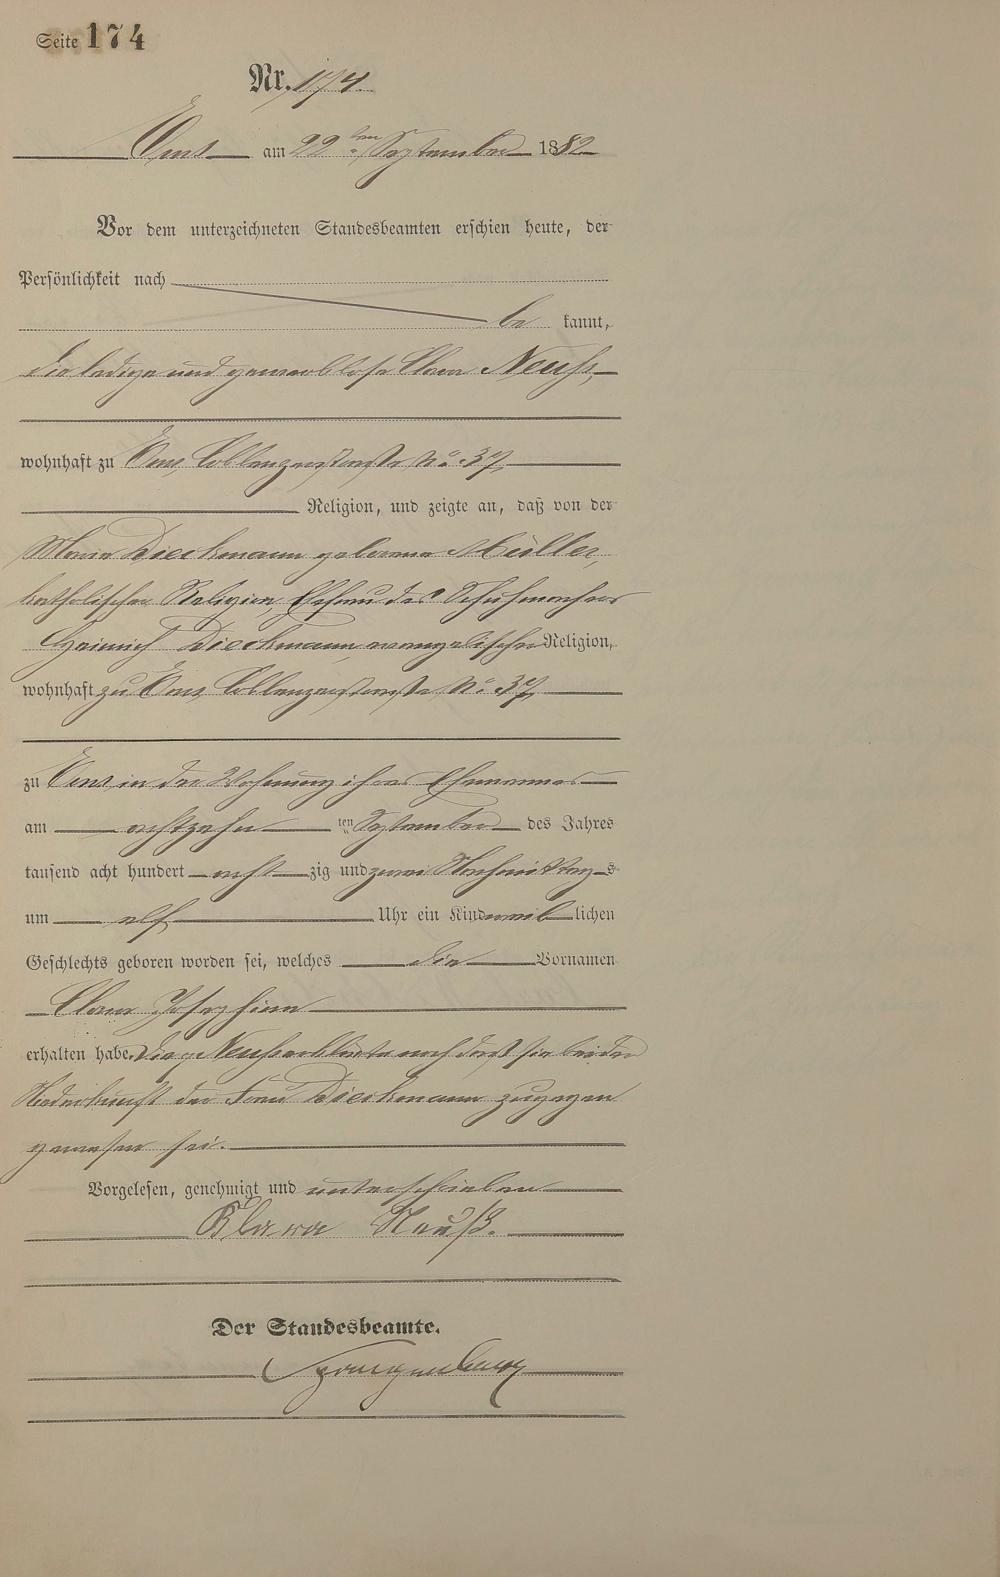 Seite 174
Nr. 174.
Ems am 22ten September 1882
Vor dem unterzeichneten Standesbeamten erschien heute, der
Persönlichkeit nach
be kannt,
die ledige und gewerblose Clara Neuß,
wohnhaft zu Ems, Coblenzerstraße No. 37,
Religion, und zeigte an, daß von der
Maria Dieckmann geborene Müller,
katholischer Religion, Ehefrau des Schuhmachers
Heinrich Dieckmann, evangelischer Religion,
wohnhaft zu Ems, Coblenzerstraße No. 37,
zu Ems in der Wohnung ihres Ehemannes
am achtzehn ten September des Jahres
tausend acht hundert acht zig und zwei Nachmittags
um elf Uhr ein Kind weib lichen
Geschlechts geboren worden sei, welches die Vornamen
Clara Josephine
erhalten habe. Die p. Neuß erklärte noch daß sie bei der
Niederkunft der Frau Dieckmann zugegen
gewesen sei.
Vorgelesen, genehmigt und unterschrieben
Klara Neuß.
Der Standesbeamte.
Spangenberg